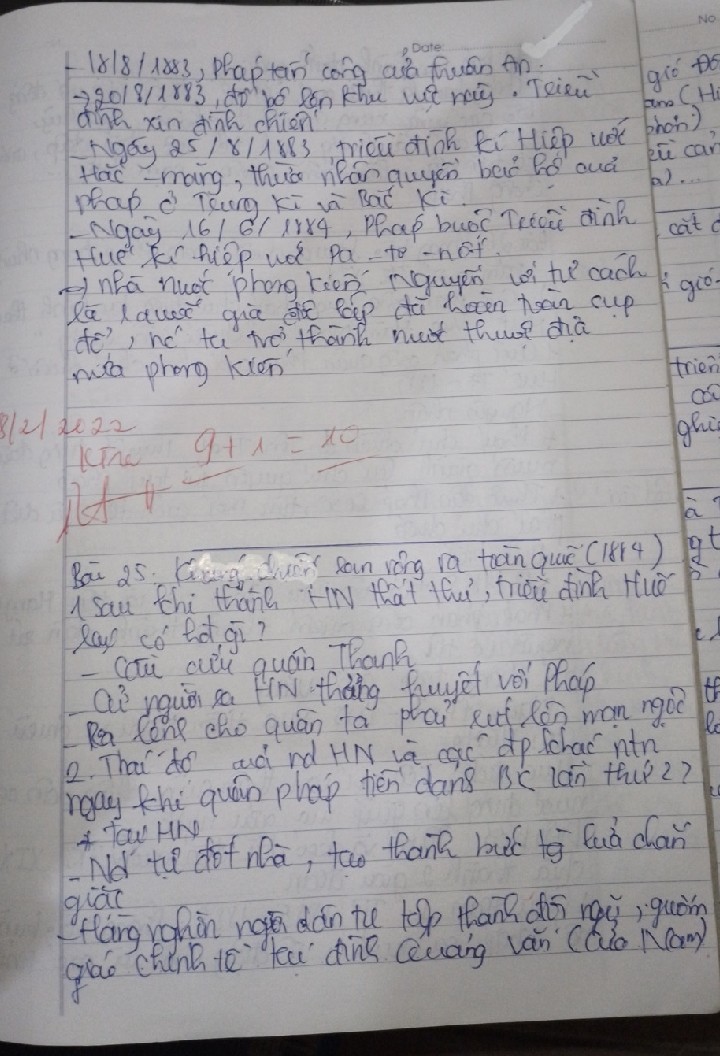 Date
No
- 18/8/1883, Pháp tấn công cửa Thuận An.
→ 20/8/1883, đổ bộ lên khu vực này. Triều
đình xin đình chiến
- Ngày 25/8/1883 triều đình kí Hiệp ước
Hác - măng, thừa nhận quyền bảo hộ của
pháp ở Trung Kì và Bắc Kì.
- Ngày 16/6/1884, Pháp buộc Triều đình
Huế kí hiệp ước Pa - tơ - nốt.
→ nhà nước phong kiến Nguyễn với tư cách
là quốc gia độc lập đã hoàn toàn sụp
đổ, nc ta trở thành nước thuộc địa
nửa phong kiến
8/2/2022
9+1=10
Bài 25. lan rộng ra toàn quốc (1884)
1 Sau khi thành HN thất thủ, triều đình Huế
lại có hđ gì?
- Cầu cứu quân Thanh
- Cử người ra HN thương thuyết với Pháp
- Ra lệnh cho quân ta phải rút lên mạn ngược
2. Thái độ của nd HN và các đp khác ntn
ngay khi quân pháp tiến đánh BK lần thứ 2?
* Tại HN
- Nd tự đốt nhà, tạo thành bức tg lửa chặn
giặc
- Hàng nghìn người dân tự tập thành đội ngũ, gươm
giáo chỉnh tề tại đình Quảng văn (Cửa Nam)
gió Đô
phòn)
cắt c
gió
triển
ghi